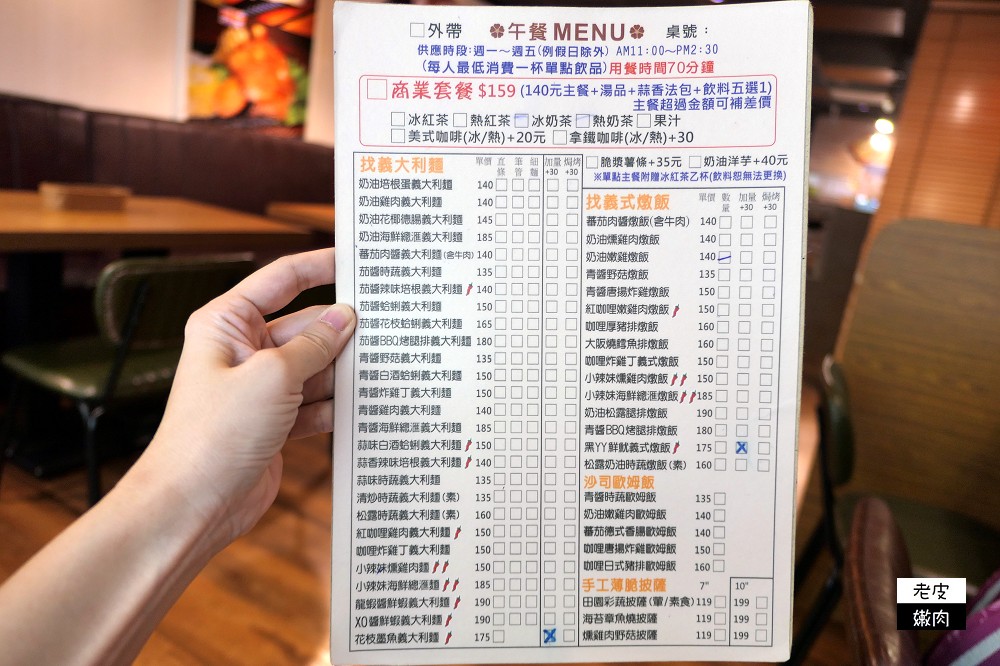 □外帶 午餐MENU 桌號：
供應時段：週一～週五(例假日除外) AM11:00～PM2:30
(每人最低消費一杯單點飲品)用餐時間70分鐘
□商業套餐 $159 (140元主餐+湯品+蒜香法包+飲料五選1)
主餐超過金額可補差價
□冰紅茶 □熱紅茶 □冰奶茶 □熱奶茶 □果汁
□美式咖啡(冰/熱)+20元 □拿鐵咖啡(冰/熱)+30
找義大利麵 單價 直條 筆管 細麵 加量+30 焗烤+30
奶油培根蛋義大利麵 140
奶油雞肉義大利麵 140
奶油花椰德腸義大利麵 145
奶油海鮮總滙義大利麵 185
蕃茄肉醬義大利麵(含牛肉) 140
茄醬時蔬義大利麵 135
茄醬辣味培根義大利麵 140
茄醬蛤蜊義大利麵 150
茄醬花枝蛤蜊義大利麵 165
茄醬BBQ烤腿排義大利麵 180
青醬野菇義大利麵 135
青醬白酒蛤蜊義大利麵 150
青醬炸雞丁義大利麵 150
青醬雞肉義大利麵 140
青醬海鮮總滙義大利麵 185
蒜味白酒蛤蜊義大利麵 150
蒜香辣味培根義大利麵 140
蒜味時蔬義大利麵 135
清炒時蔬義大利麵(素) 135
松露時蔬義大利麵(素) 160
紅咖哩雞肉義大利麵 150
咖哩炸雞丁義大利麵 150
小辣妹燻雞肉麵 150
小辣妹海鮮總滙麵 185
龍蝦醬鮮蝦義大利麵 190
XO醬鮮蝦義大利麵 190
花枝墨魚義大利麵 175
□脆漿薯條+35元 □奶油洋芋+40元
※單點主餐附贈冰紅茶乙杯(飲料恕無法更換)
找義式燉飯 單價 數量 加量+30 焗烤+30
蕃茄肉醬燉飯(含牛肉) 140
奶油燻雞肉燉飯 140
奶油嫩雞燉飯 140
青醬野菇燉飯 135
青醬唐揚炸雞燉飯 150
紅咖哩嫩雞肉燉飯 150
咖哩厚豬排燉飯 160
大阪燒鱈魚排燉飯 160
咖哩炸雞丁義式燉飯 150
小辣妹燻雞肉燉飯 150
小辣妹海鮮總滙燉飯 185
奶油松露腿排燉飯 190
青醬BBQ烤腿排燉飯 180
黑YY鮮魷義式燉飯 175
松露奶油時蔬燉飯(素) 160
沙司歐姆飯
青醬時蔬歐姆飯 135
奶油嫩雞肉歐姆飯 140
蕃茄德式香腸歐姆飯 140
咖哩唐揚炸雞歐姆飯 150
咖哩日式豬排歐姆飯 160
手工薄脆披薩 7" 10"
田園彩蔬披薩(葷/素食) 119 199
海苔章魚燒披薩 119 199
燻雞肉野菇披薩 119 199
老皮
嫩肉